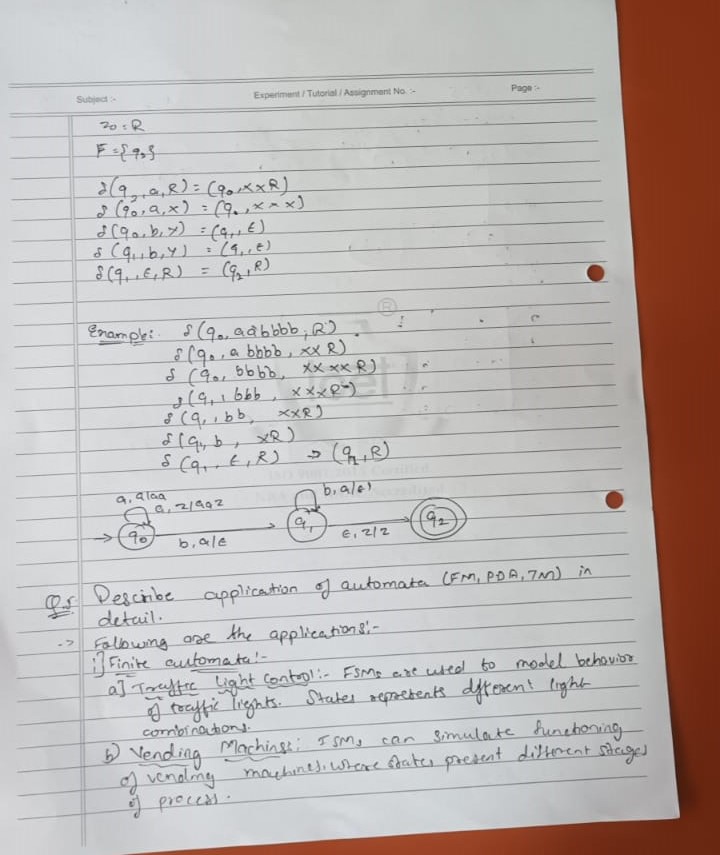 Subject :- Experiment / Tutorial / Assignment No. :- Page :-
z0 : R
F = {q2}
δ(q2, a, R) = (q0, xxR)
δ(q0, a, x) = (q0, xxx)
δ(q0, b, y) = (q1, ε)
δ(q1, b, y) = (q1, ε)
δ(q1, ε, R) = (q2, R)
®
Example:. δ(q0, aabbbb, R)
δ(q0, abbbb, xxR)
δ(q0, bbbb, xxxxR)
δ(q1, bbb, xxxR)
δ(q1, bb, xxR)
δ(q1, b, xR)
δ(q1, ε, R) ⇒ (q2, R)
a, a/aa
a, z/aaz
b, a/ε
q0
b, a/ε
q1
ε, z/z
q2
Q.5 Describe application of automata (FM, PDA, TM) in
detail.
-> Following are the applications:-
i] Finite automata:-
a] Traffic Light Control:- FSMs are used to model behavior
of traffic lights. States represents different light
combinations.
b) Vending Machines: FSMs can simulate functioning
of vending machines. where states present different stages
of process.